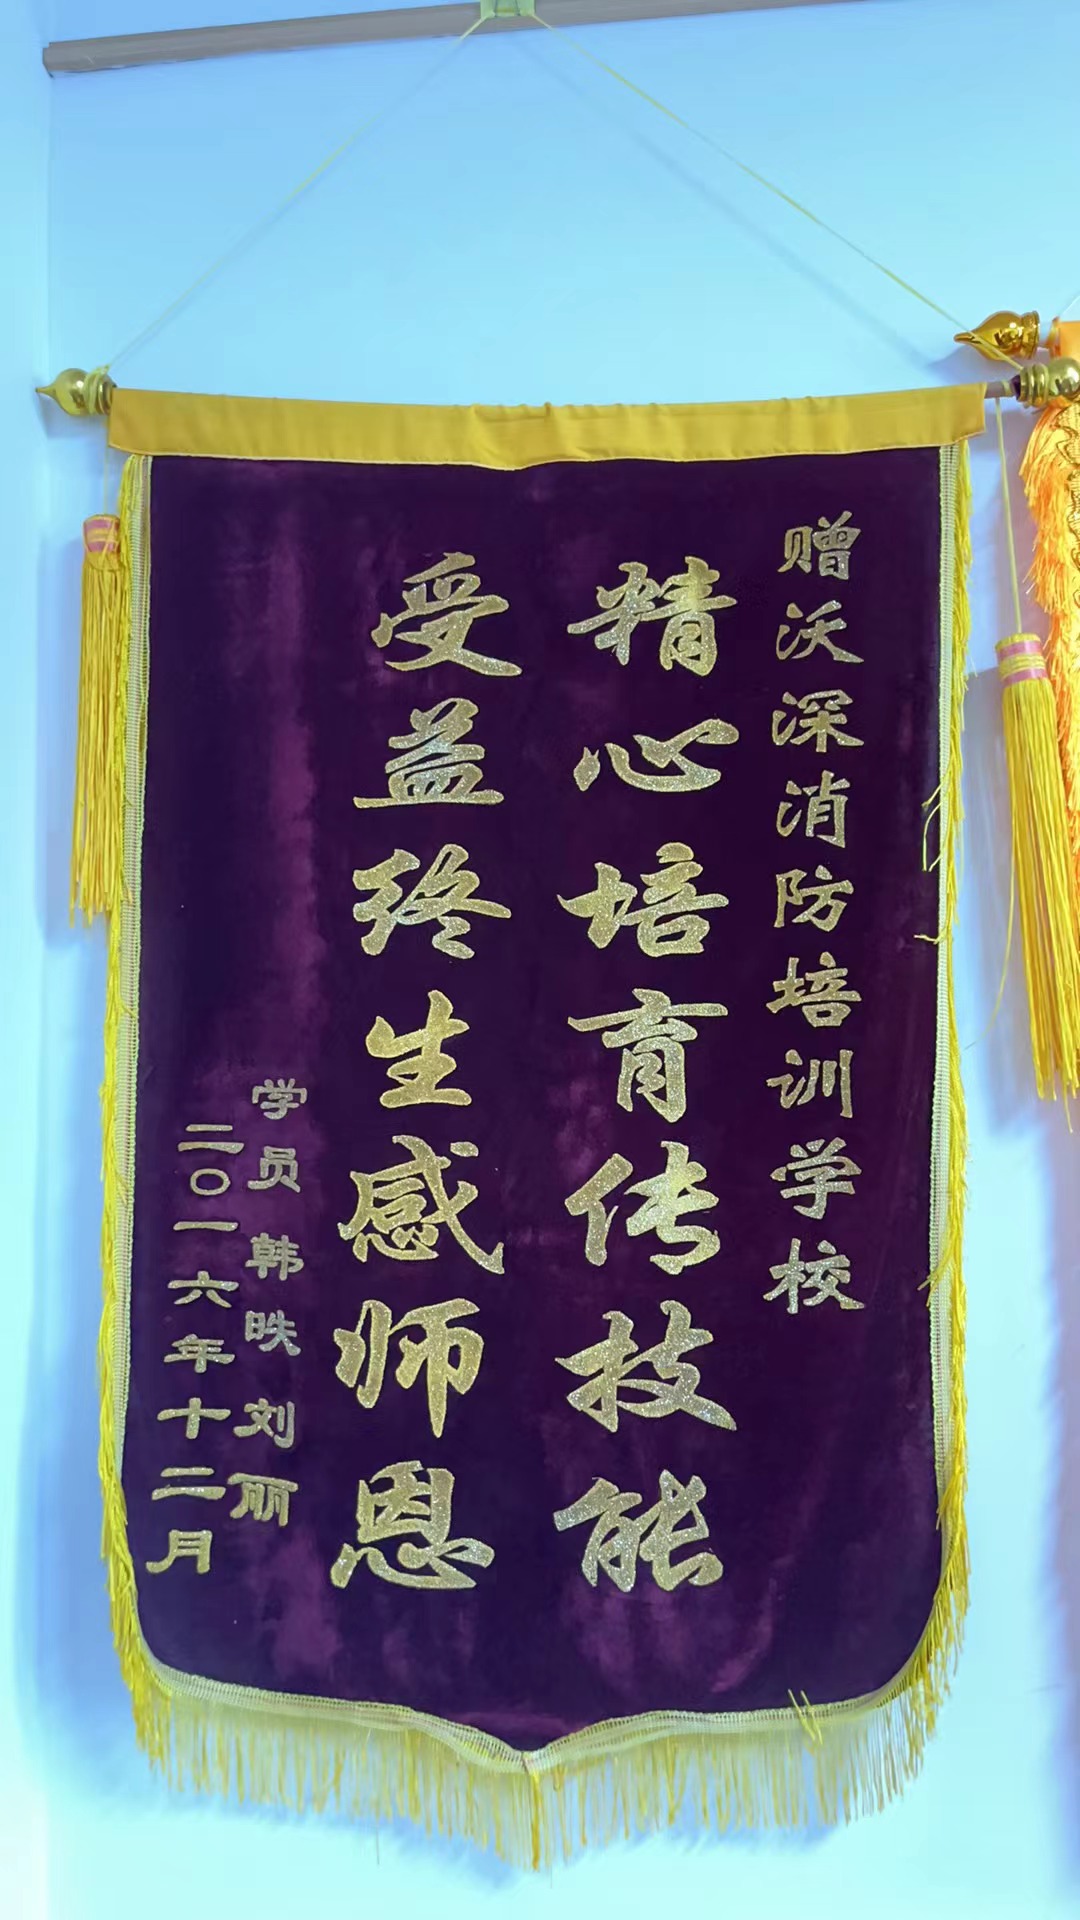 赠沃深消防培训学校
精心培育传技能
受益终生感师恩
学员 韩昳 刘丽
二〇一六年十二月